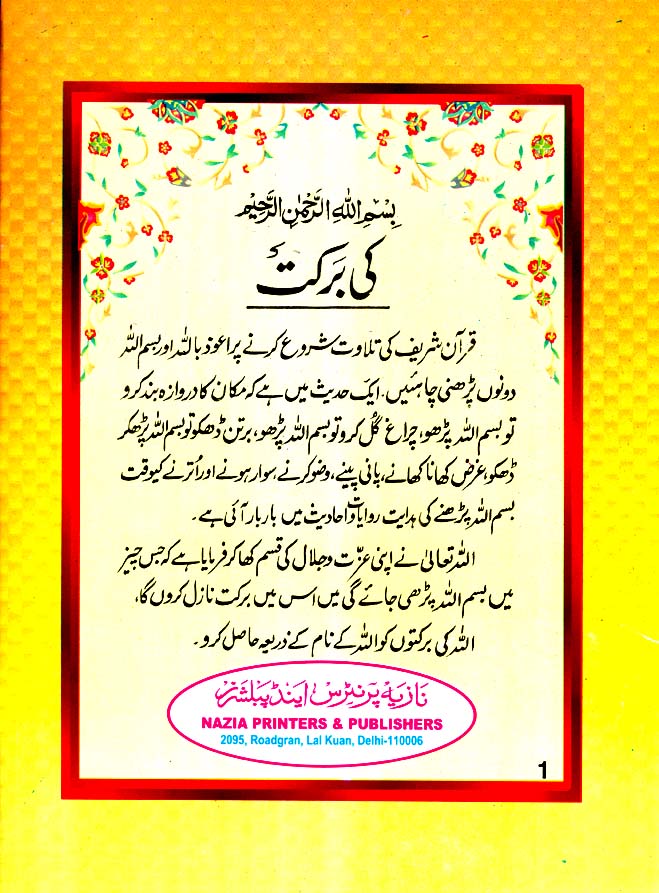 بِسْمِ اللهِ الرَّحْمٰنِ الرَّحِيْمِ
کی بَرکت
قرآن شریف کی تلاوت شروع کرنے پر اعوذ باللہ اور بسم اللہ
دونوں پڑھنی چاہئیں. ایک حدیث میں ہے کہ مکان کا دروازہ بند کرو
تو بسم اللہ پڑھو، چراغ گُل کرو تو بسم اللہ پڑھو، برتن ڈھکو تو بسم اللہ پڑھکر
ڈھکو، غرض کھانا کھانے، پانی پینے، وضو کرنے، سوار ہونے اور اُترنے کیوقت
بسم اللہ پڑھنے کی ہدایت روایات واحادیث میں بار بار آئی ہے۔
اللہ تعالیٰ نے اپنی عزّت وجلال کی قسم کھا کر فرمایا ہے کہ جس چیز
میں بسم اللہ پڑھی جائے گی میں اس میں برکت نازل کروں گا،
اللہ کی برکتوں کو اللہ کے نام کے ذریعہ حاصل کرو۔
نازیہ پرنٹرس اینڈ پبلشرز
NAZIA PRINTERS & PUBLISHERS
2095, Roadgran, Lal Kuan, Delhi-110006
1